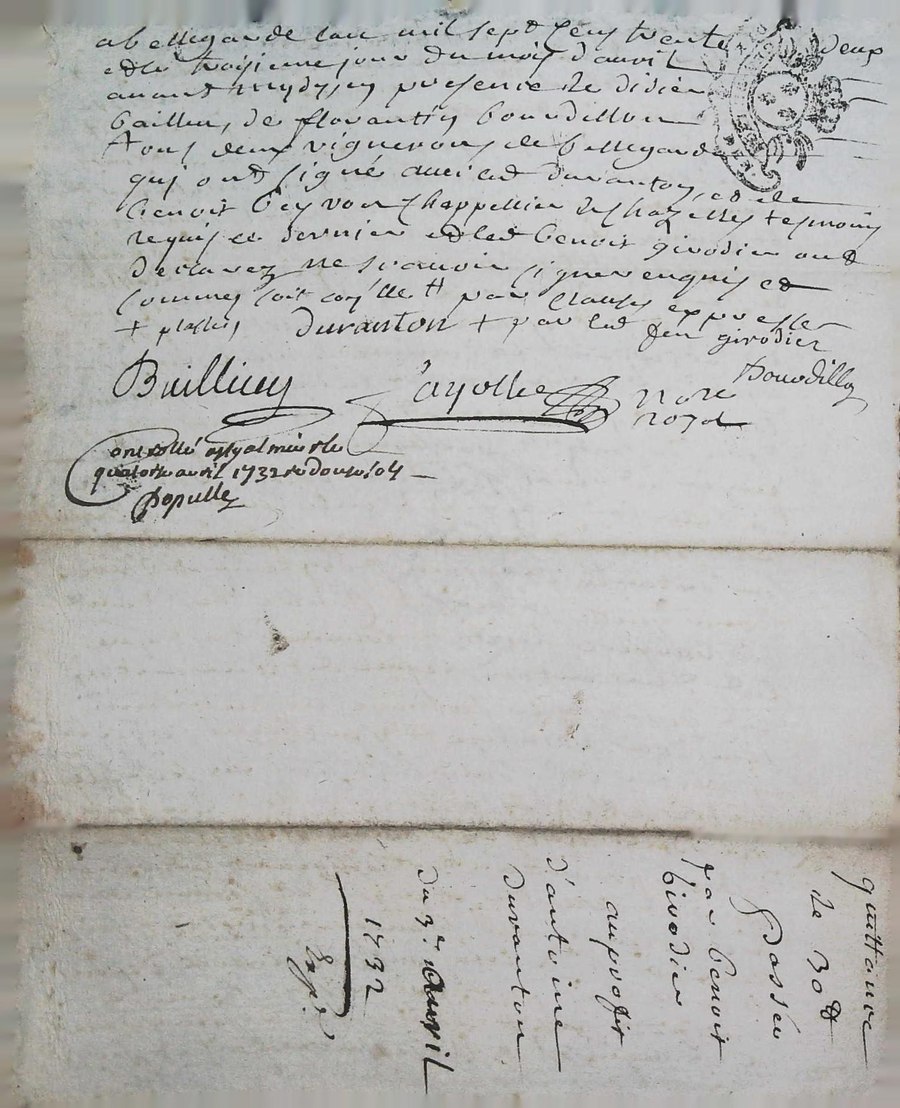 a bellegarde lan mil sept cens trente deux
et le troisieme jour du mois d'avril
avant midy, en presence de didier
baillieu, de florantin bourdillon
tous deux vignerons de bellegarde
qui ont signé avec led duranton, et de
benoit chappellier de chazelles tesmoins
requis ce dernier et led benoit girodier ont
declarez ne scavoir signer enquis et
sommes soit par clause expresse
+ plassin duranton + par led
feu girodier
Baillieu
ayolle
Bourdillon
nore
royal
controllé a st galmier le
quatorse avril 1732 re douse s. 04
Populle
quittance
de 30 tt
passée
par benoit
Girodier
au profit
d'antoine
duranton
du 3e avril
1732
Exp.